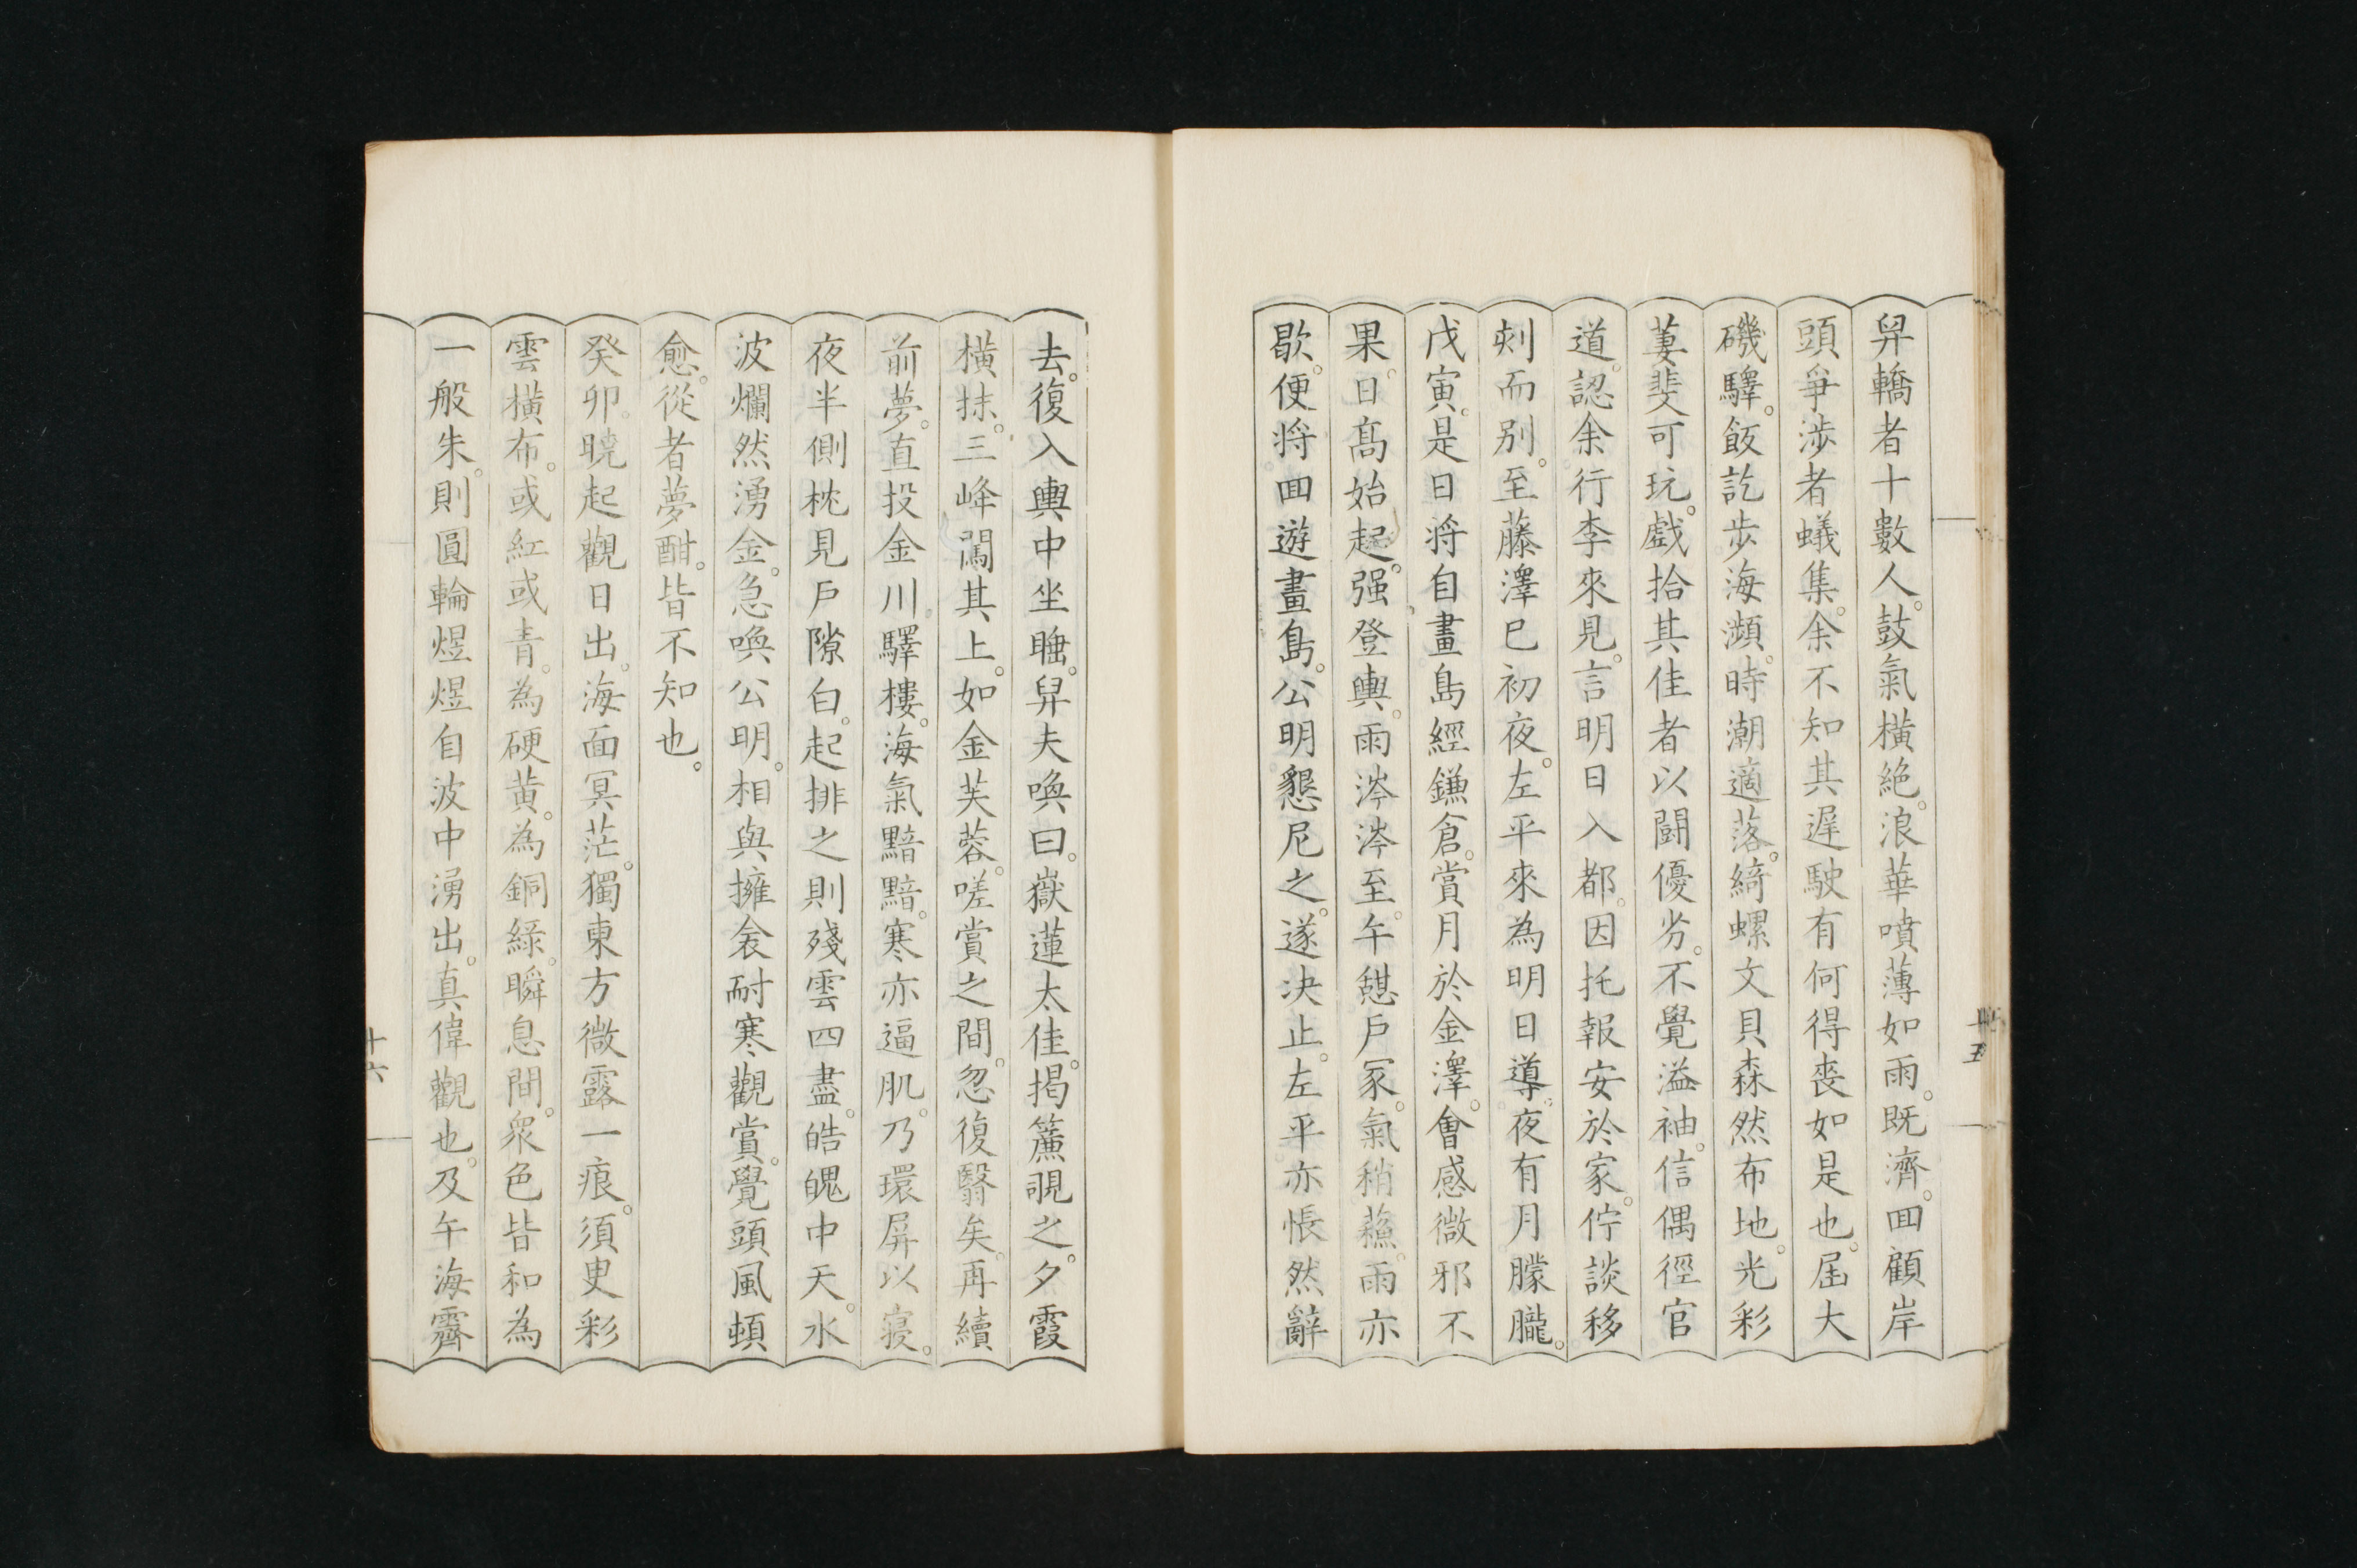 舁轎者十數人。鼓氣橫絶。浪華噴薄如雨。既濟。回顧岸
頭爭渉者蟻集。余不知其遅駛有何得喪如是也。届大
磯驛。飯訖歩海瀕。時潮適落。綺螺文貝森然布地。光彩
萋斐可玩。戯拾其佳者以鬪優劣。不覺溢袖。信偶徑官
道。認余行李來見。言明日入都。因托報安於家。佇談移
刻而別。至藤澤已初夜。左平來為明日導。夜有月朦朧。
戊寅。是日將自畫島經鎌倉。賞月於金澤。會感微邪不
果。日髙始起。强登輿。雨涔涔至。午憇戸冢。氣稍蘓。雨亦
歇。便將回遊畫島。公明懇尼之。遂决止。左平亦悵然辭
去。復入輿中坐睡。舁夫喚曰。嶽蓮太佳。掲簾覗之。夕霞
橫抹。三峰闖其上。如金芙蓉。嗟賞之間。忽復翳矣。再續
前夢。直投金川驛樓。海氣黯黯。寒亦逼肌。乃環屏以寝。
夜半側枕見戸隙白。起排之則殘雲四盡。皓魄中天。水
波爛然湧金。急喚公明。相與擁衾耐寒觀賞。覺頭風頓
愈。從者夢酣。皆不知也。
癸卯。曉起觀日出。海面冥茫。獨東方微露一痕。須臾彩
雲橫布。或紅或青。為硬黄。為銅緑。瞬息間。衆色皆和為
一般朱。則圓輪煜煜自波中湧出。真偉觀也。及午海霽
十六